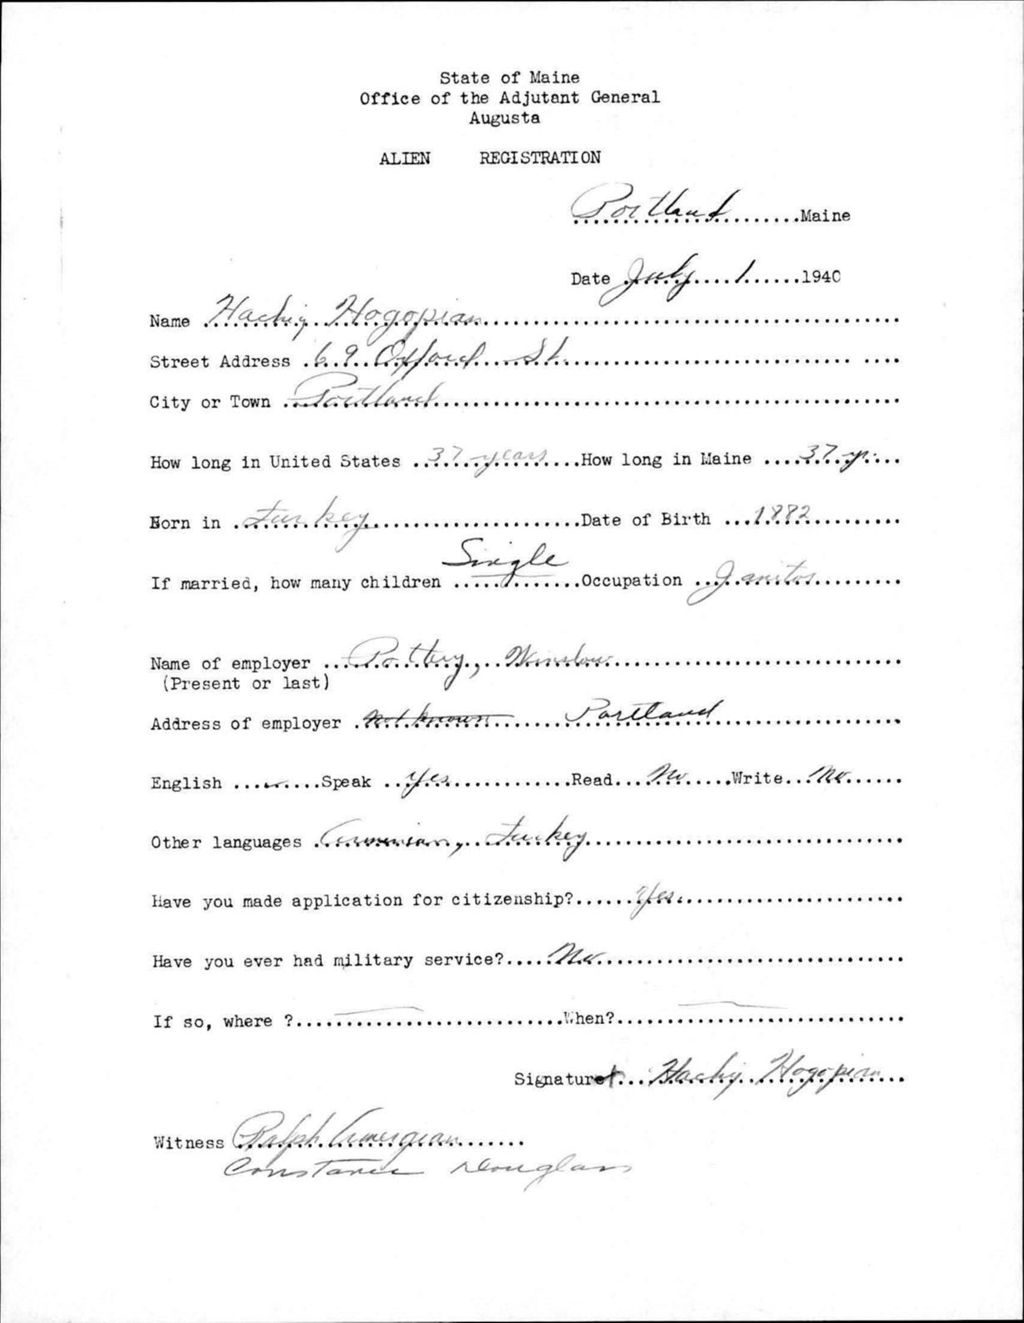 State of Maine
Office of the Adjutant General
Augusta
ALIEN REGISTRATION
Portland Maine
Date July 1 1940
Name Hachig Hogopian
Street Address 69 Oxford St.
City or Town Portland
How long in United States 37 years How long in Maine 37 yr.
Born in Turkey Date of Birth 1882
If married, how many children Single Occupation Janitor
Name of employer Pottery, Winslow
(Present or last)
Address of employer not known Portland
English Speak Yes Read No Write No
Other languages Armenian, Turkey
Have you made application for citizenship? Yes
Have you ever had military service? No
If so, where ? When?
Signature Hachig Hogopian
Witness Ralph Amergian
Constance Douglass